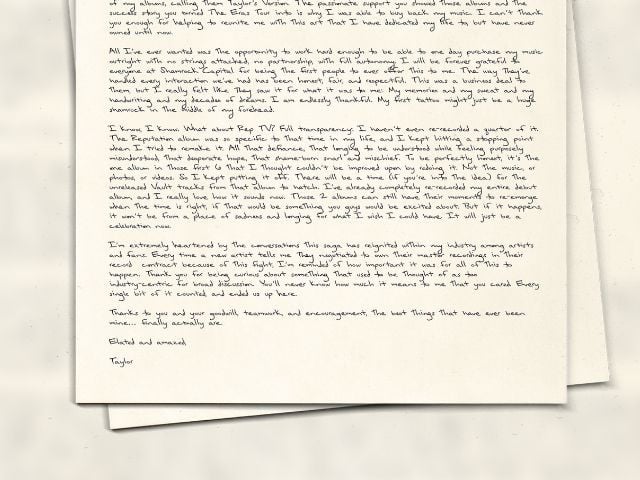 of my albums, calling them Taylor's Version. The passionate support you showed those albums and the
success story you turned The Eras Tour into is why I was able to buy back my music. I can't thank
you enough for helping to reunite me with this art that I have dedicated my life to, but have never
owned until now.
All I've ever wanted was the opportunity to work hard enough to be able to one day purchase my music
outright with no strings attached, no partnership, with full autonomy. I will be forever grateful to
everyone at Shamrock Capital for being the first people to ever offer this to me. The way they've
handled every interaction we've had has been honest, fair, and respectful. This was a business deal to
them, but I really felt like they saw it for what it was to me: My memories and my sweat and my
handwriting and my decades of dreams. I am endlessly thankful. My first tattoo might just be a huge
shamrock in the middle of my forehead.
I know, I know. What about Rep TV? Full transparency: I haven't even re-recorded a quarter of it.
The Reputation album was so specific to that time in my life, and I kept hitting a stopping point
when I tried to remake it. All that defiance, that longing to be understood while feeling purposely
misunderstood, that desperate hope, that shame-born snarl and mischief. To be perfectly honest, it's the
one album in those first 6 that I thought couldn't be improved upon by redoing it. Not the music, or
photos, or videos. So I kept putting it off. There will be a time (if you're into the idea) for the
unreleased Vault tracks from that album to hatch. I've already completely re-recorded my entire debut
album, and I really love how it sounds now. Those 2 albums can still have their moments to re-emerge
when the time is right, if that would be something you guys would be excited about. But if it happens,
it won't be from a place of sadness and longing for what I wish I could have. It will just be a
celebration now.
I'm extremely heartened by the conversations this saga has reignited within my industry among artists
and fans. Every time a new artist tells me they negotiated to own their master recordings in their
record contract because of this fight, I'm reminded of how important it was for all of this to
happen. Thank you for being curious about something that used to be thought of as too
industry-centric for broad discussion. You'll never know how much it means to me that you cared. Every
single bit of it counted and ended us up here.
Thanks to you and your goodwill, teamwork, and encouragement, the best things that have ever been
mine... finally actually are.
Elated and amazed,
Taylor